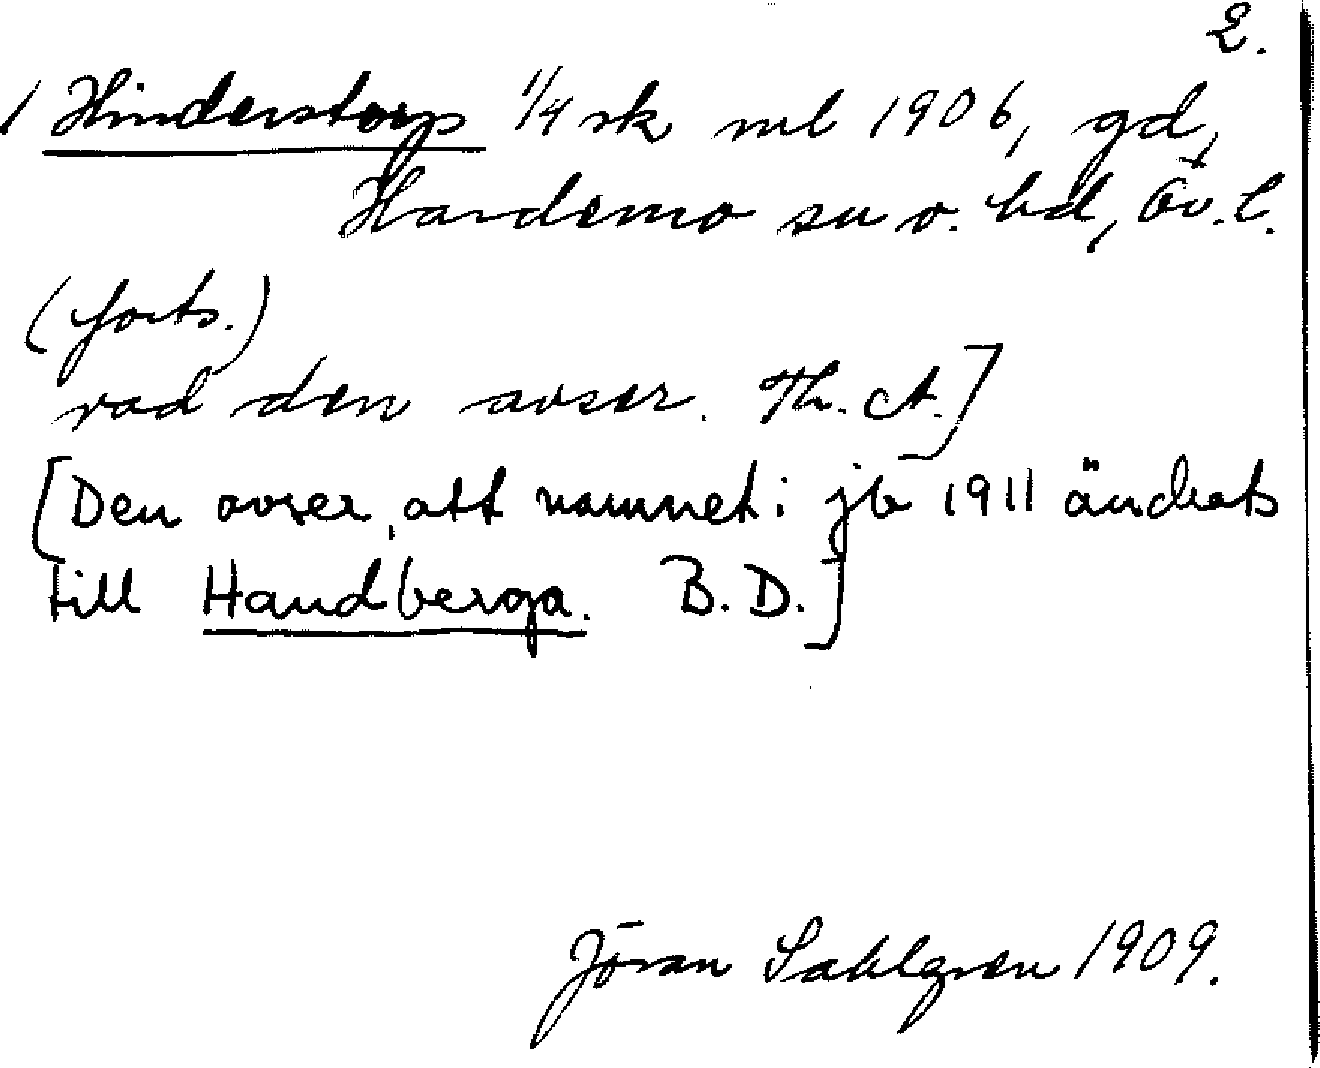 2.
/ Hinderstorp 1/4 sk ml 1906, gd,
Hardemo sn o. hd, Öv. l.
(forts.)
vad den avser. Th. A.]
[Den avser, att namnet i jb 1911 ändrats
till Handberga. B.D.]
Jöran Sahlgren 1909.